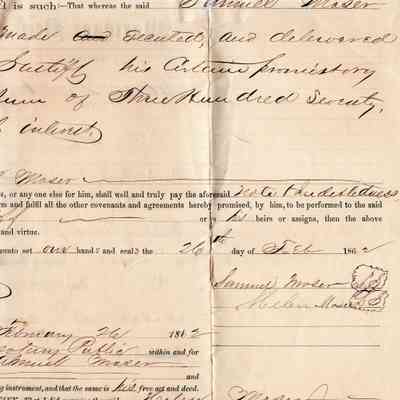 is such:—That whereas the said Samuel Moser
made and executed, and delivered
his Certain promissory
of Three Hundred Seventy,
interest,
Moser
s, or any one else for him, shall well and truly pay the aforesaid note & indebtedness
rm and fulfil all the other covenants and agreements hereby promised, by him, to be performed to the said
or his heirs or assigns, then the above
and virtue.
unto set our hands and seals the 26th day of Feb 1862
Samuel Moser
Helen Moser
February 26 1862
Notary Public within and for
Samuel Moser
and
ng instrument, and that the same is his free act and deed.
Moser